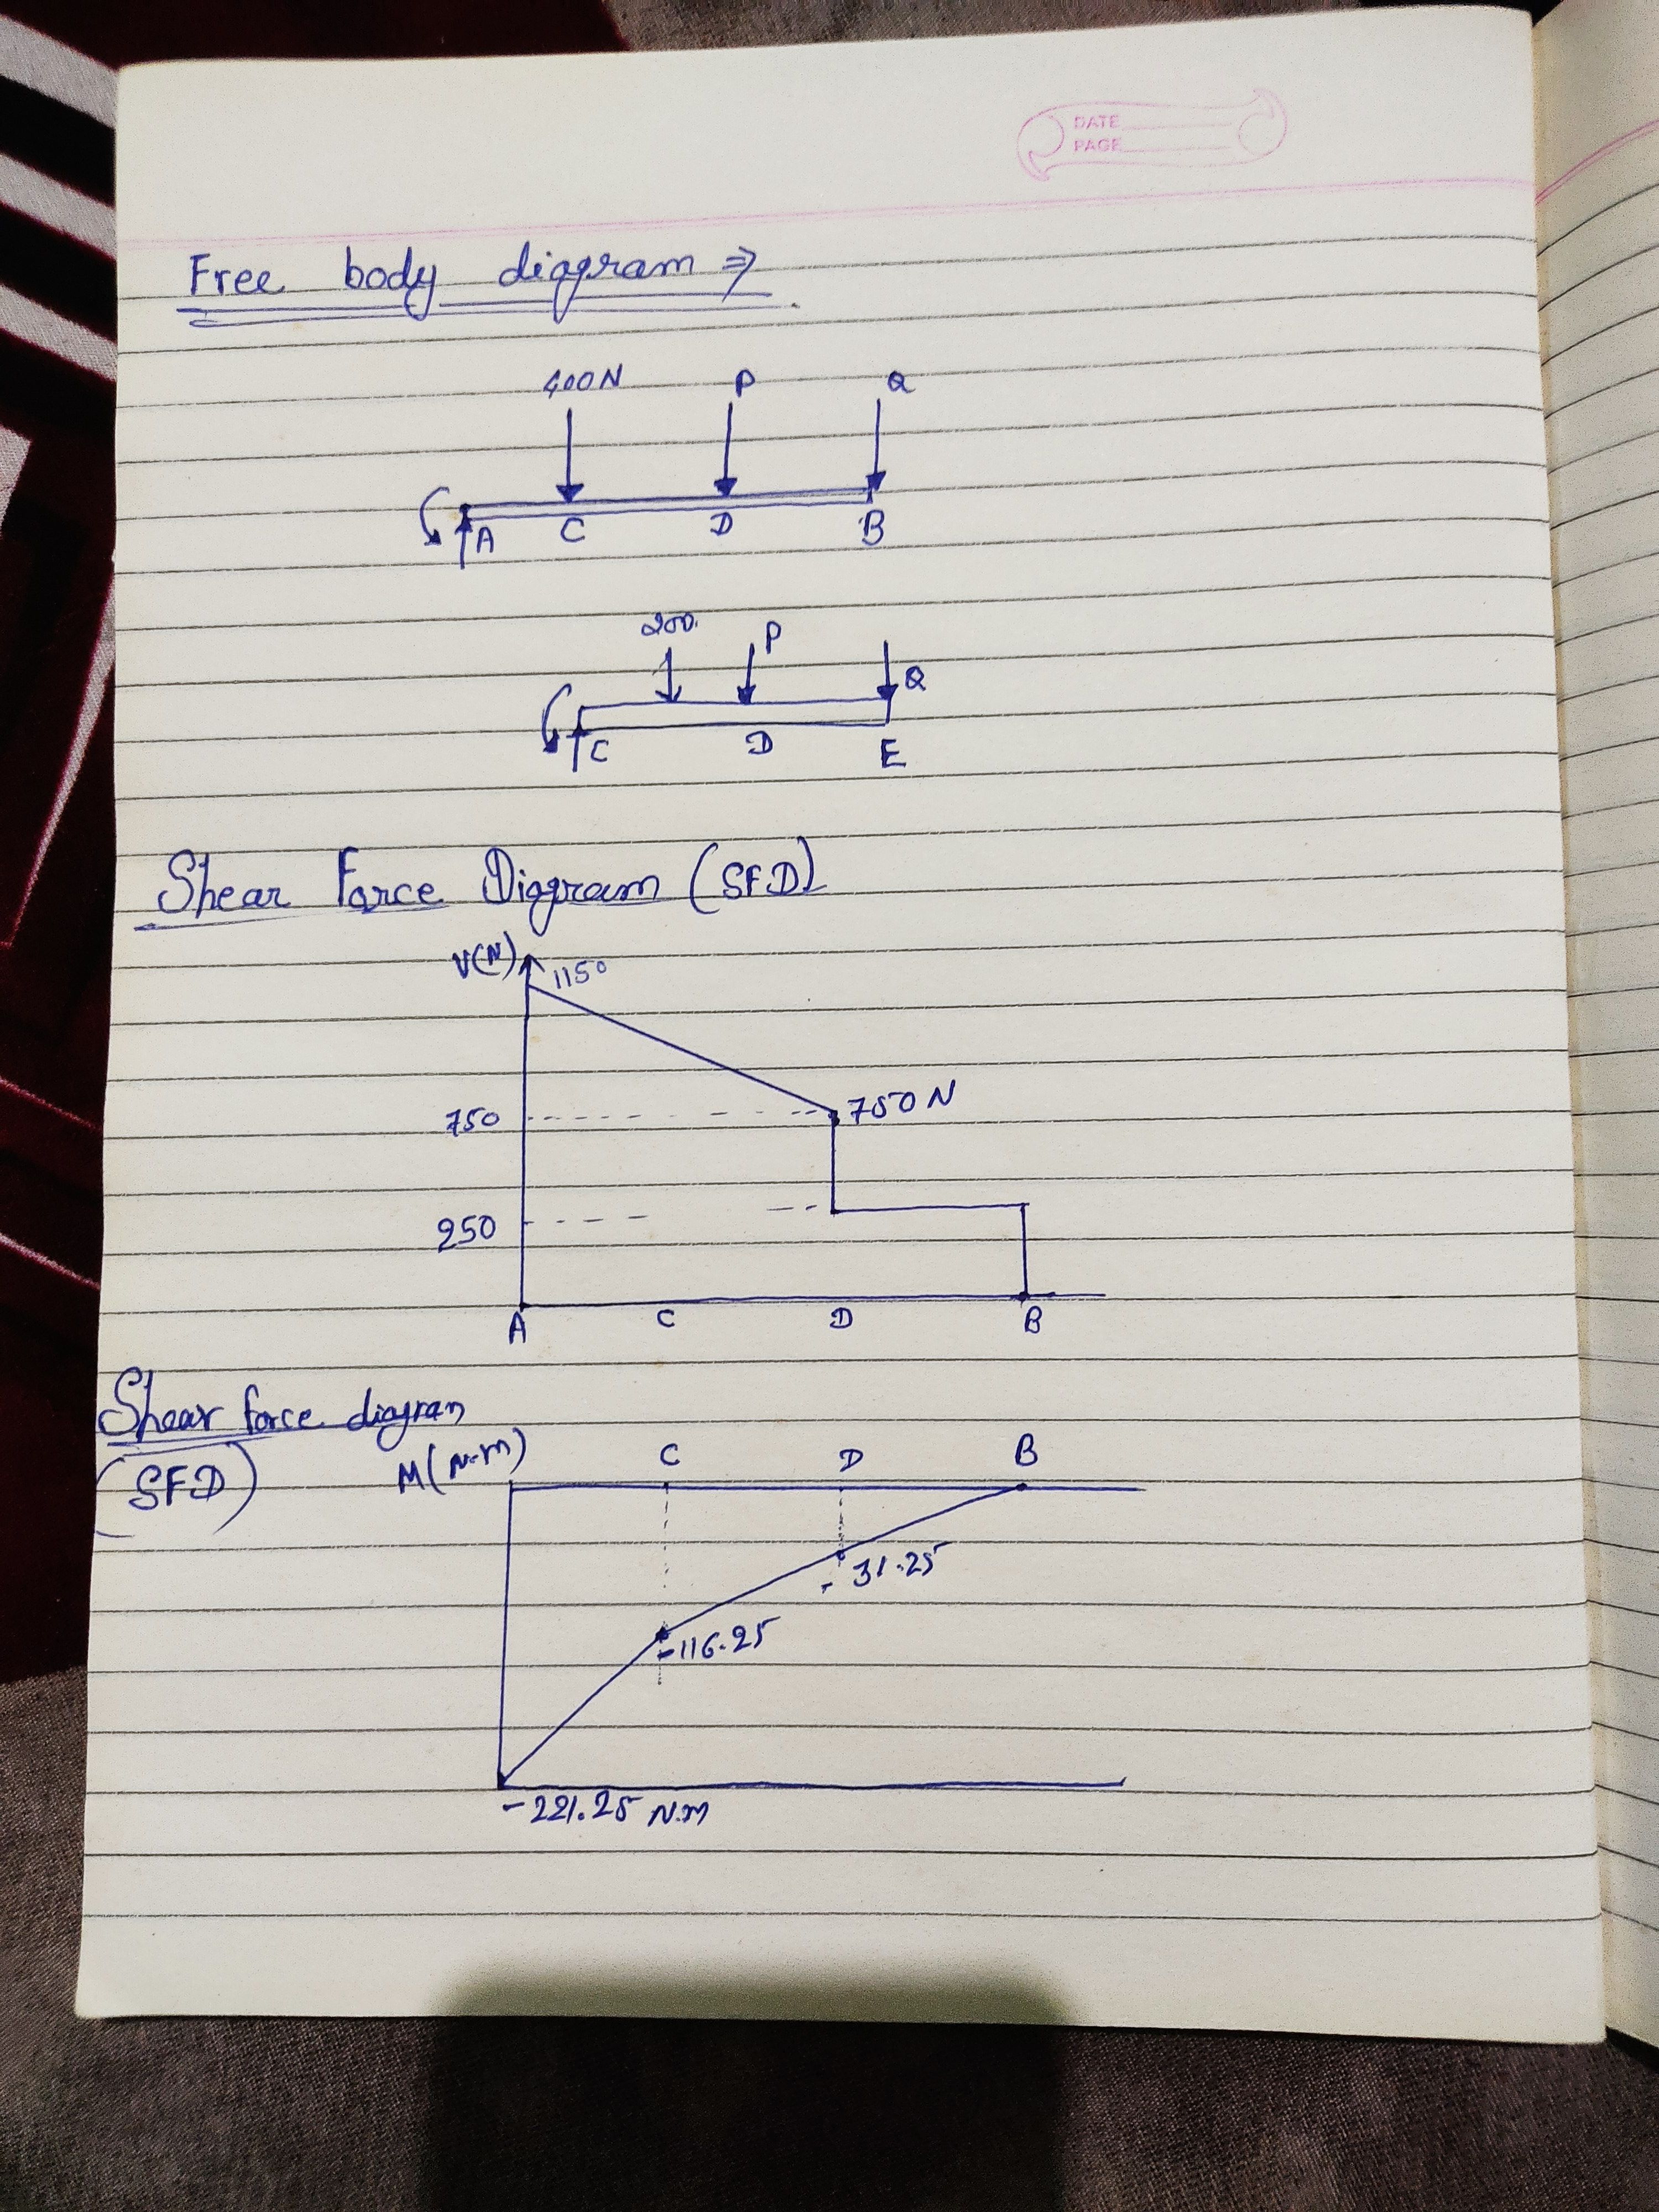 DATE
PAGE
Free body diagram ⇒
400N P Q
A C D B
200. P
Q
C D E
Shear Force Diagram (SFD)
V(N) 1150
750 750N
250
A C D B
Shear force diagram
(SFD) M(N-m) C D B
- 31.25
-116.25
-221.25 N.m